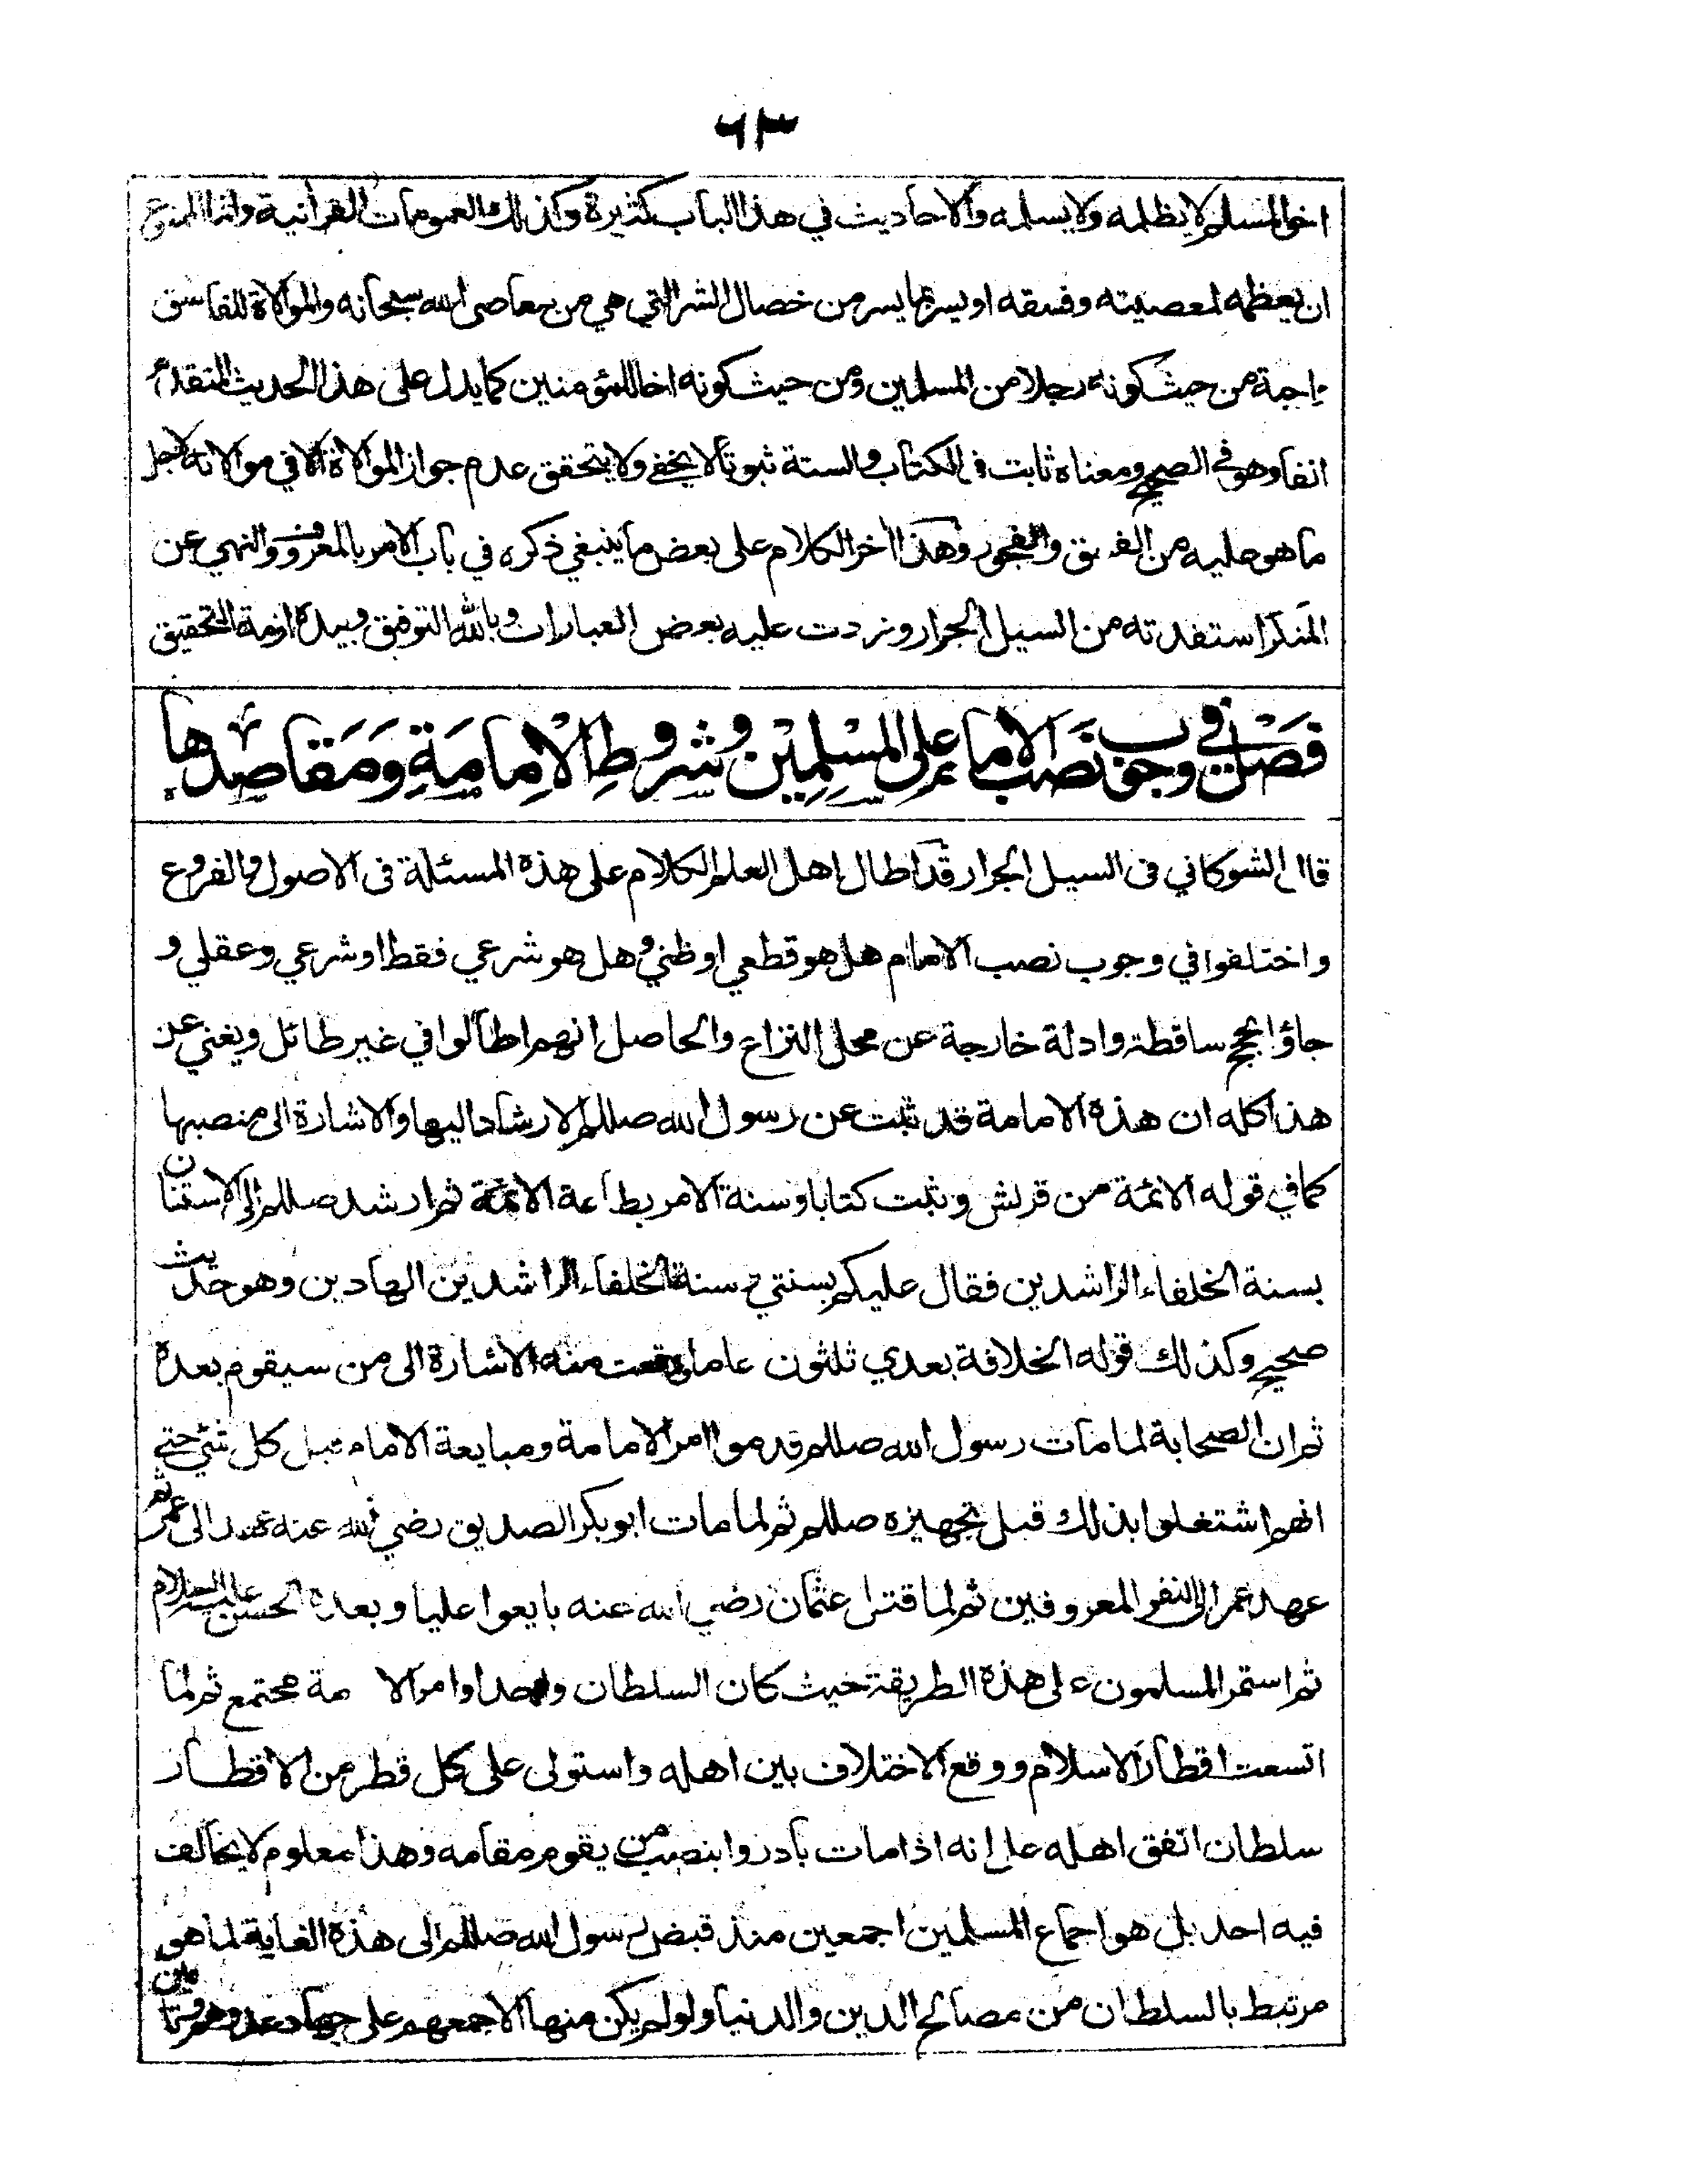 ٦٣
اخو المسلم لا يظلمه ولا يسلمه والاحاديث في هذا الباب كثيرة وكذلك العمومات القرأنية وانما الممنوع
ان يعظمه لمعصيته وفسقه او يسر بما يسر من خصال الشر التي هي من معاصى الله سبحانه والموالاة للفاسق
راجعة من حيث كونه رجلا من المسلمين ومن حيث كونه اخا للمؤمنين كما يدل على هذا الحديث المتقدم
انفا وهو فى الصحيح ومعناه ثابت فى الكتاب والسنة ثبوتا لا يخفے ولا يتحقق عدم جواز الموالاة الا في موالاته لاجل
ما هو عليه من الفسق والفجور وهذا اخر الكلام على بعض ما ينبغي ذكره في باب الامر بالمعروف والنهي عن
المنكر استفدته من السيل الجرار وزدت عليه بعض العبارات وبالله التوفيق وبيده ازمة التحقيق
فَصْل في وجوب نَصب الامام على المسْلِمِيْن وشروط الْاِمامَةِ وَمَقاصدها
قال الشوكاني فى السيل الجرار قد اطال اهل العلم الكلام على هذه المسئلة فى الاصول والفروع
واختلفوا في وجوب نصب الامام هل هو قطعي او ظني وهل هو شرعي فقط او شرعي وعقلي و
جاؤا بحجج ساقطة وادلة خارجة عن محل النزاع والحاصل انهم اطالوا في غير طائل ويغني عن
هذا كله ان هذه الامامة قد ثبت عن رسول الله صللم الارشاد اليها والاشارة الى منصبها
كما في قوله الائمة من قريش وثبت كتابا وسنة الامر بطاعة الائمة ثم ارشد صللم الى الاستنان
بسنة الخلفاء الراشدين فقال عليكم بسنتي وسنة الخلفاء الراشدين الهادين وهو حديث
صحيح وكذلك قوله الخلافة بعدي ثلثون عاما ووقعت منه الاشارة الى من سيقوم بعده
ثم ان الصحابة لما مات رسول الله صللم قدموا امر الامامة ومبايعة الامام قبل كل شئ حتے
انهم اشتغلوا بذلك قبل تجهيزه صللم ثم لما مات ابوبكر الصديق رضي الله عنه عهد الى عمر ثم
عهد عمر الى النفر المعروفين ثم لما قتل عثمان رضي الله عنه بايعوا عليا وبعده الحسن عليه السلام
ثم استمر المسلمون على هذه الطريقة حيث كان السلطان واحدا وامر الا مة مجتمع ثم لما
اتسعت اقطار الاسلام ووقع الاختلاف بين اهله واستولى على كل قطر من الاقطار
سلطان اتفق اهله على انه اذا مات بادروا بنصب من يقوم مقامه وهذا معلوم لا يخالف
فيه احد بل هو اجماع المسلمين اجمعين منذ قبض رسول الله صللم الى هذه الغاية لما هو
مرتبط بالسلطان من مصالح الدين والدنيا ولو لم يكن منها الا جمعهم على جهاد عدوهم وتامين